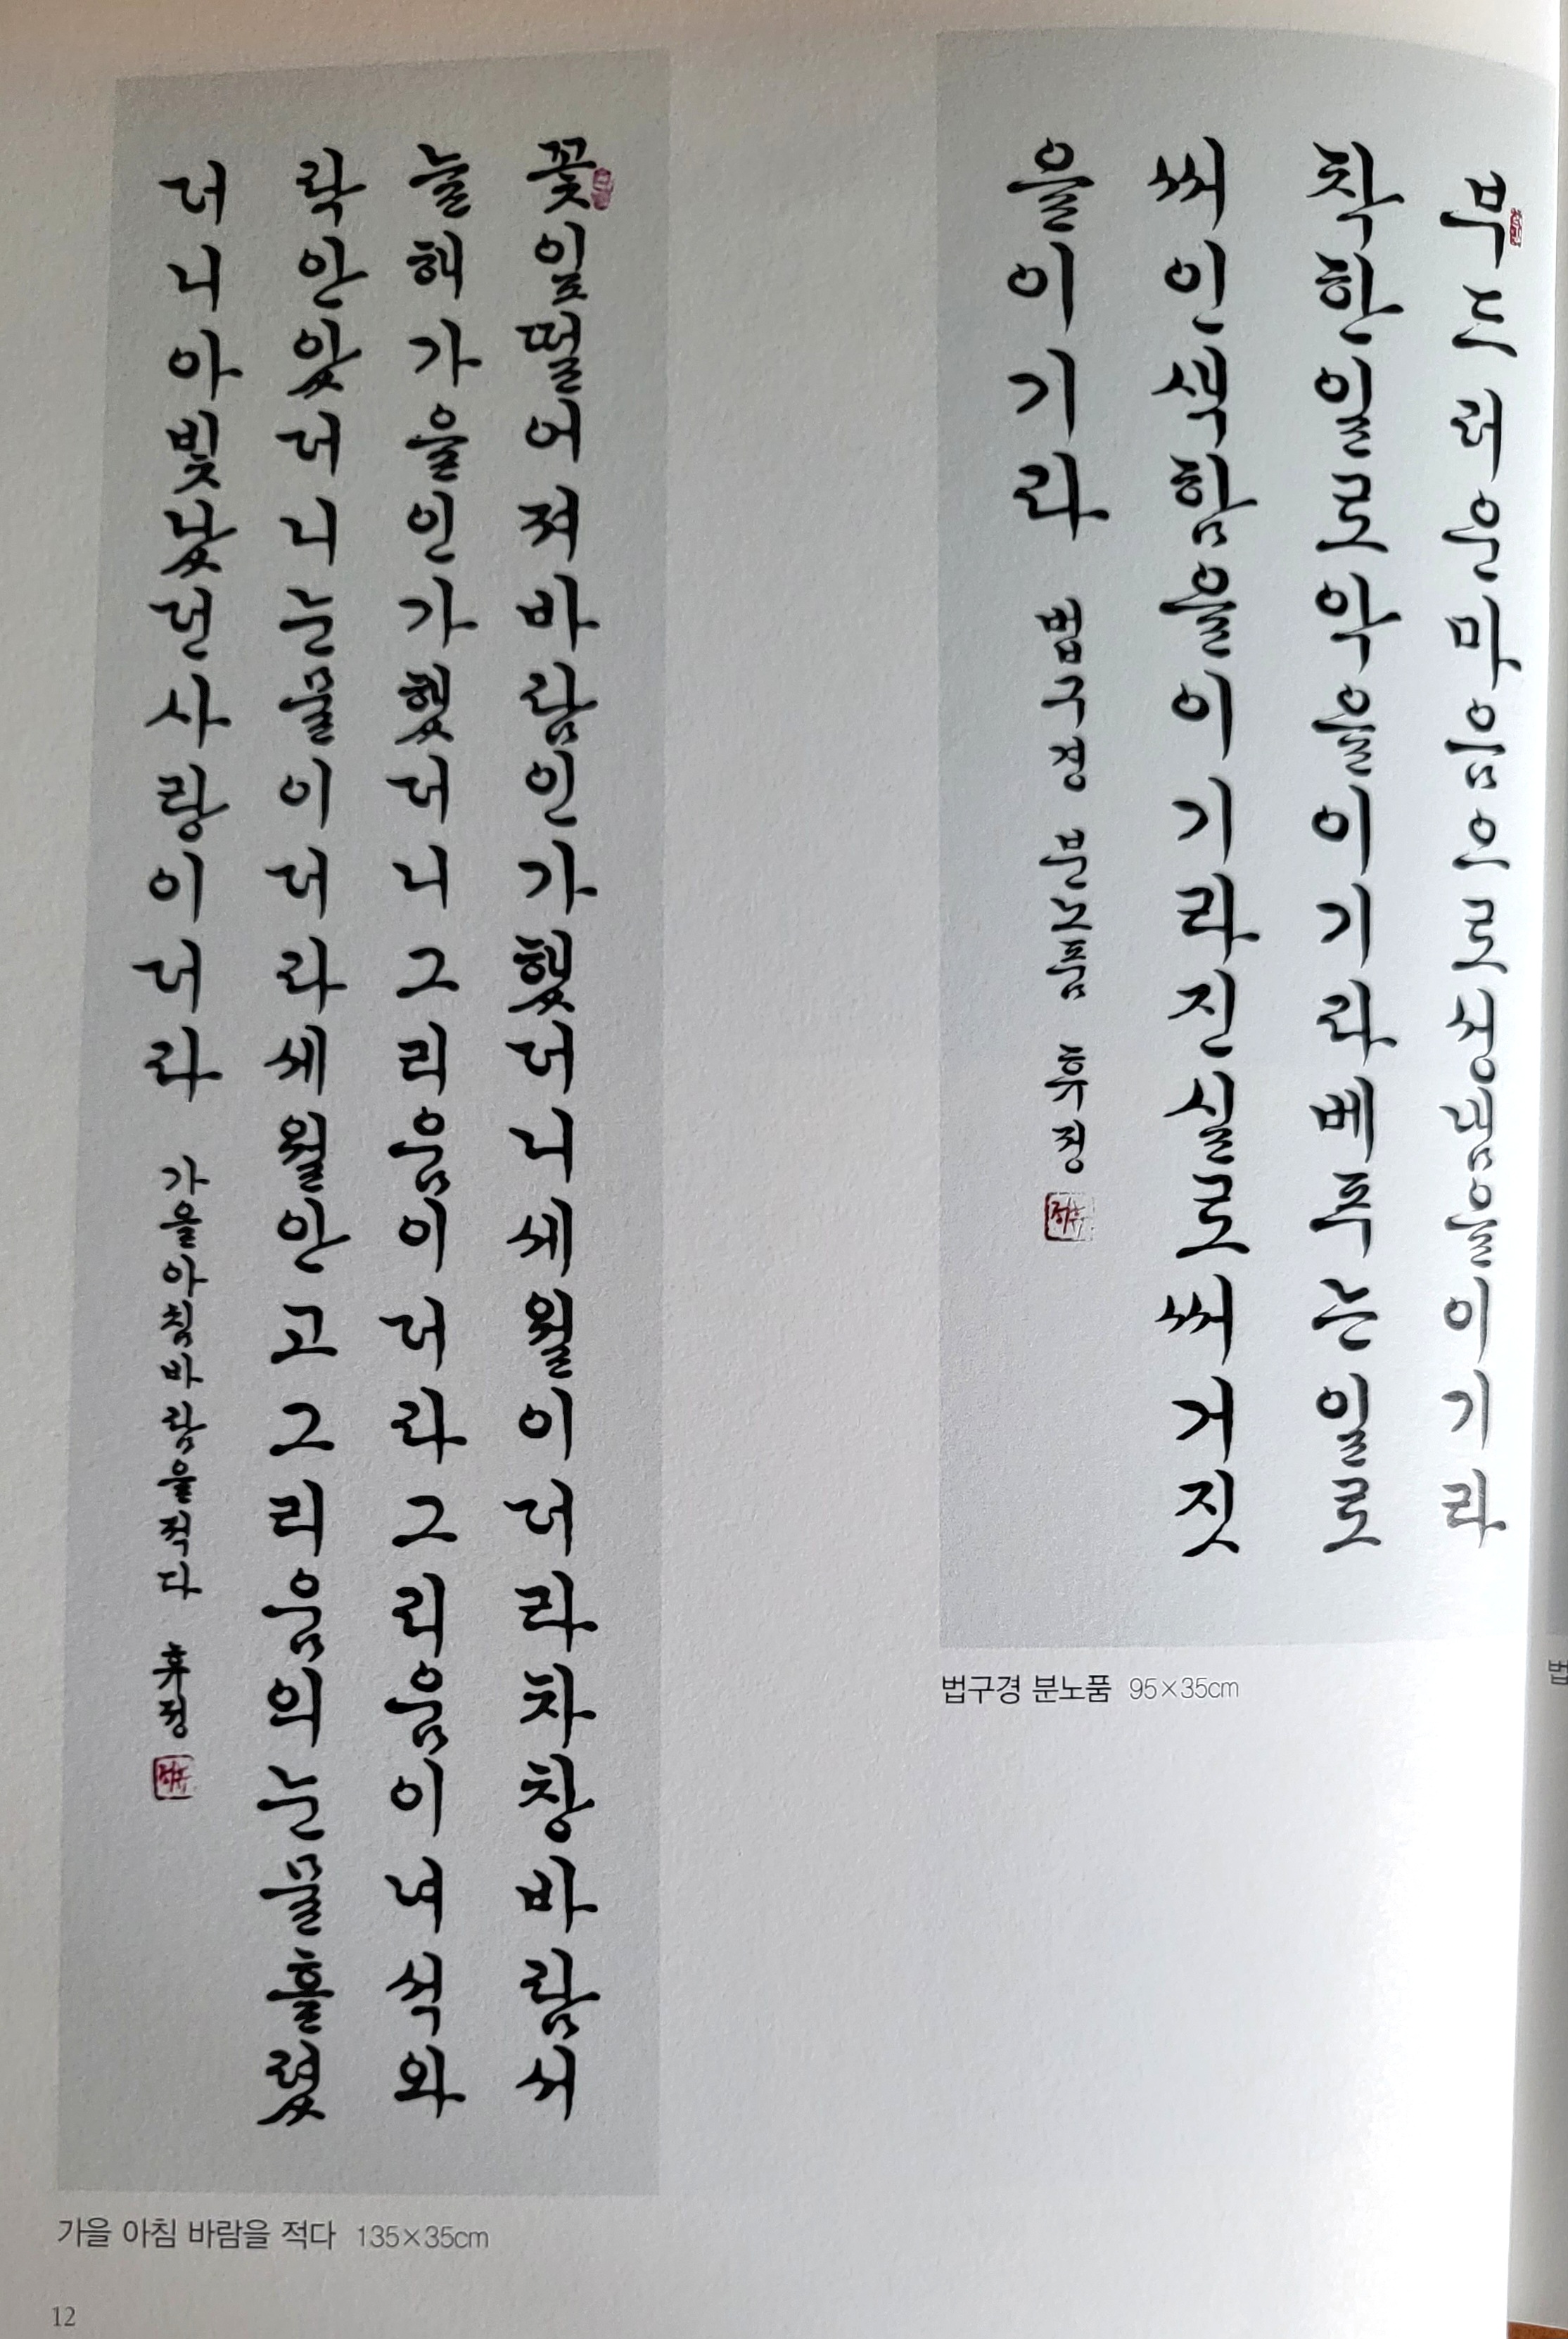 부드러운마음으로성냄을이기라
착한일로악을이기라베푸는일로
써인색함을이기라진실로써거짓
을이기라 법구경 분노품 후정
법구경 분노품 95×35cm
꽃잎떨어져바람인가했더니세월이더라차창바람서
늘해가을인가했더니그리움이더라그리움이녀석와
락안았더니눈물이더라세월안고그리움의눈물흘렸
더니아빛났던사랑이더라 가을아침바람을적다 후정
가을 아침 바람을 적다 135×35cm
12